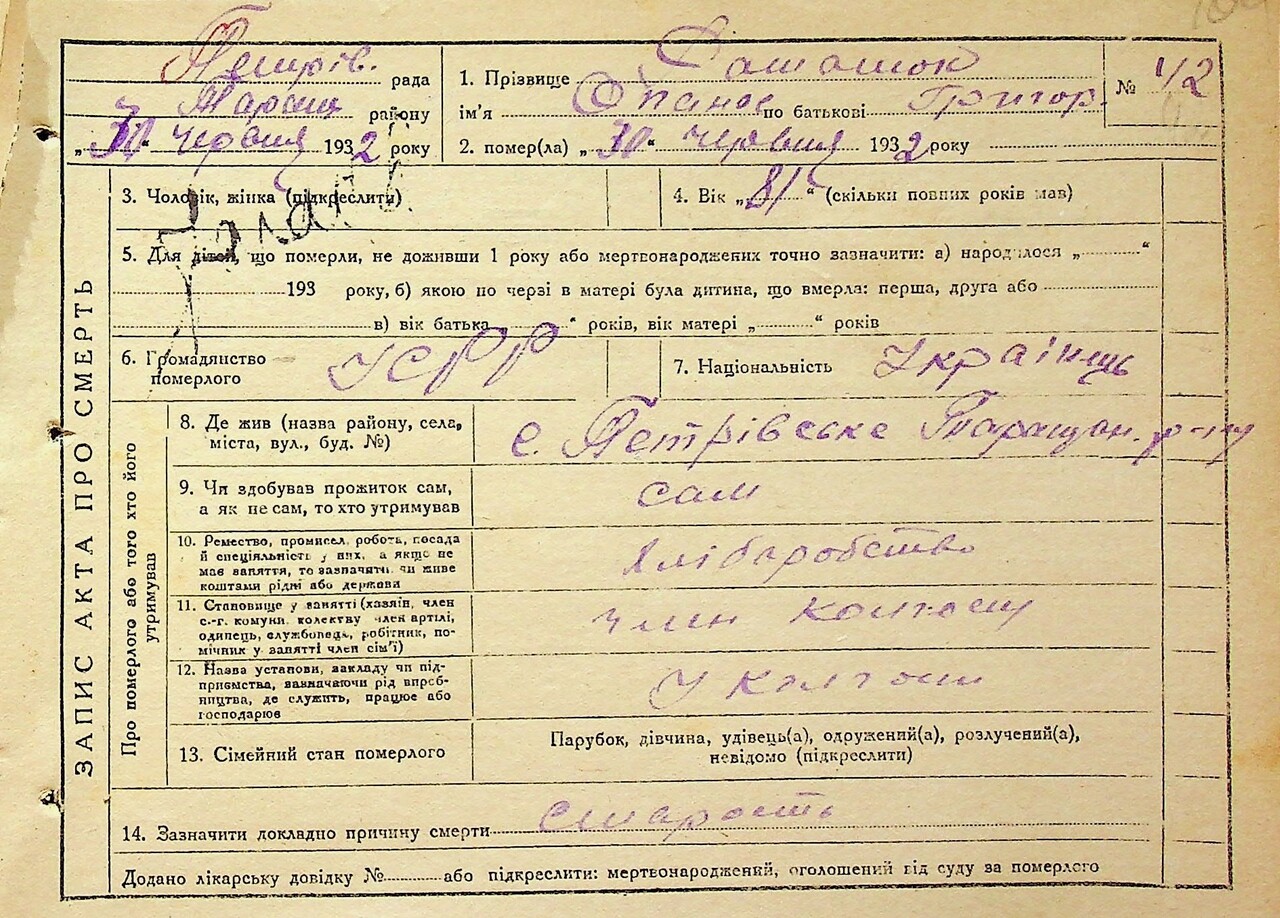 Петрів. рада
Таращ. району
„30“ червня 1932 року
1. Прізвище
ім'я Опанас по батькові Григор.
№ 42
2. помер(ла) „30“ червня 1932 року
ЗАПИС АКТА ПРО СМЕРТЬ
3. Чоловік, жінка (підкреслити)
4. Вік „81“ (скільки повних років мав)
5. Для дітей, що померли, не доживши 1 року або мертвонароджених точно зазначити: а) народилося „ “
193 року, б) якою по черзі в матері була дитина, що вмерла: перша, друга або
в) вік батька “ років, вік матері „ “ років
6. Громадянство
померлого
УСРР
7. Національність Українець
Про померлого або того хто його
утримував
8. Де жив (назва району, села,
міста, вул., буд. №)
с. Петрівське Таращан. р-ну
9. Чи здобував прожиток сам,
а як не сам, то хто утримував
сам
10. Ремество, промисел, робота, посада
й спеціяльність у них, а якщо не
має заняття, то зазначити, чи живе
коштами рідні або держави
хліборобство
11. Становище у занятті (хазяїн, член
с.-г. комуни, колективу член артілі,
одинець, службовець, робітник, по-
мічник у занятті член сім'ї)
член колгоспу
12. Назва установи, закладу чи під-
приємства, зазначаючи рід вироб-
ництва, де служить, працює або
господарює
У колгоспі
13. Сімейний стан померлого
Парубок, дівчина, удівець(а), одружений(а), розлучений(а),
невідомо (підкреслити)
14. Зазначити докладно причину смерти старость
Додано лікарську довідку № або підкреслити: мертвонароджений, оголошений від суду за померлого